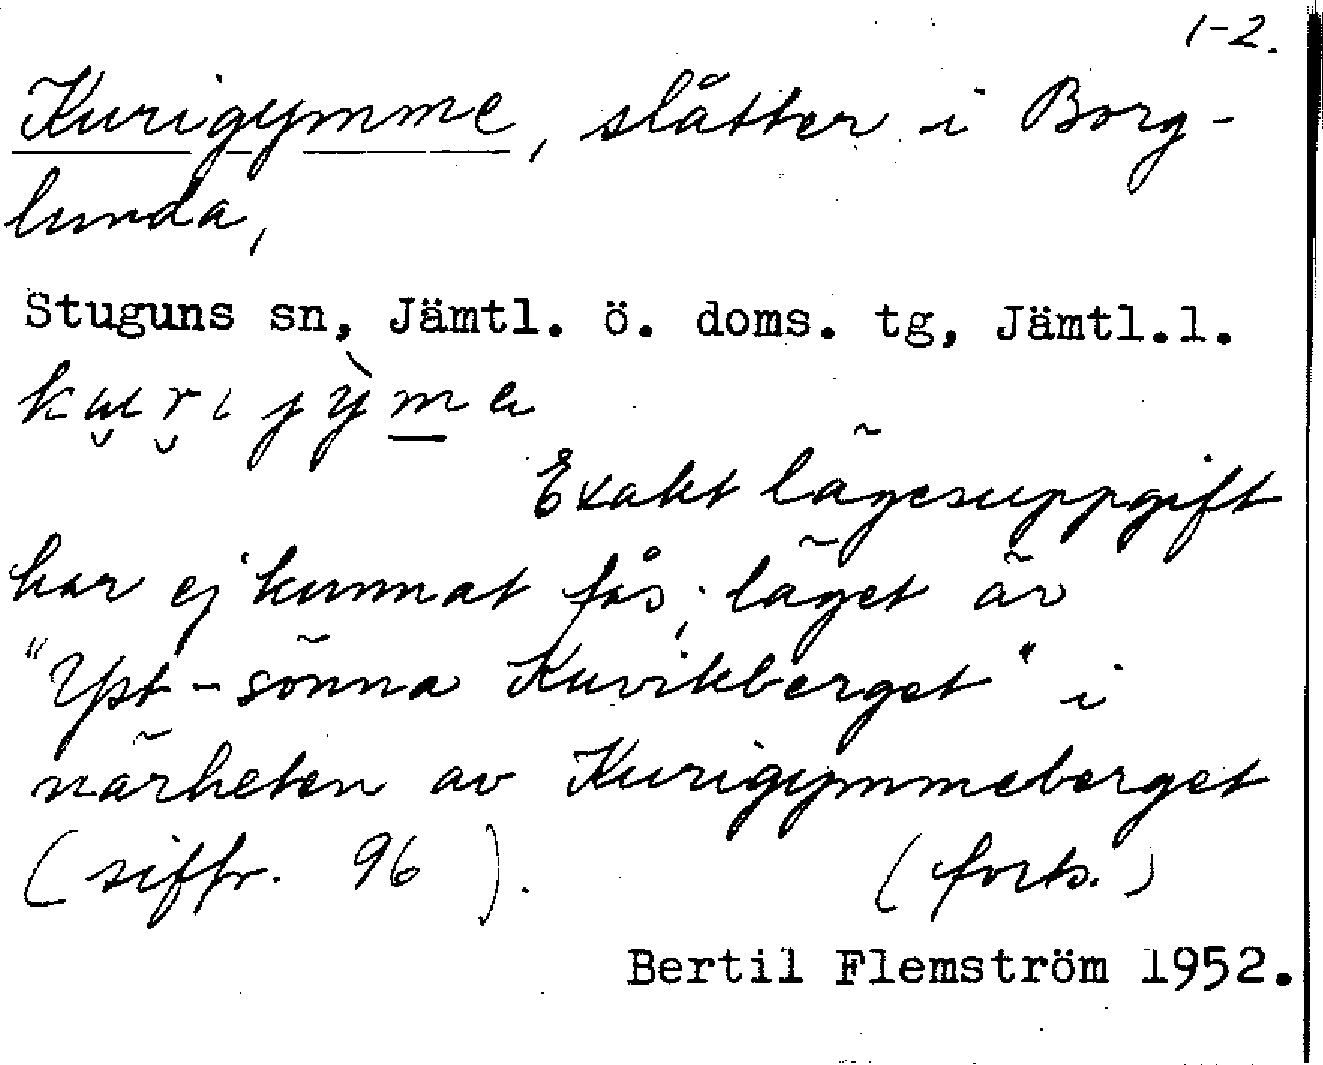 1-2.
Kurigymme, slåtter i Borg-
lunda,
Stuguns sn, Jämtl. ö. doms. tg, Jämtl.l.
Exakt lägesuppgift
har ej kunnat fås; läget är
"Yst-sönna Kuvikberget" i
närheten av Kurigymmeberget
(siffr. 96). (forts.)
Bertil Flemström 1952.